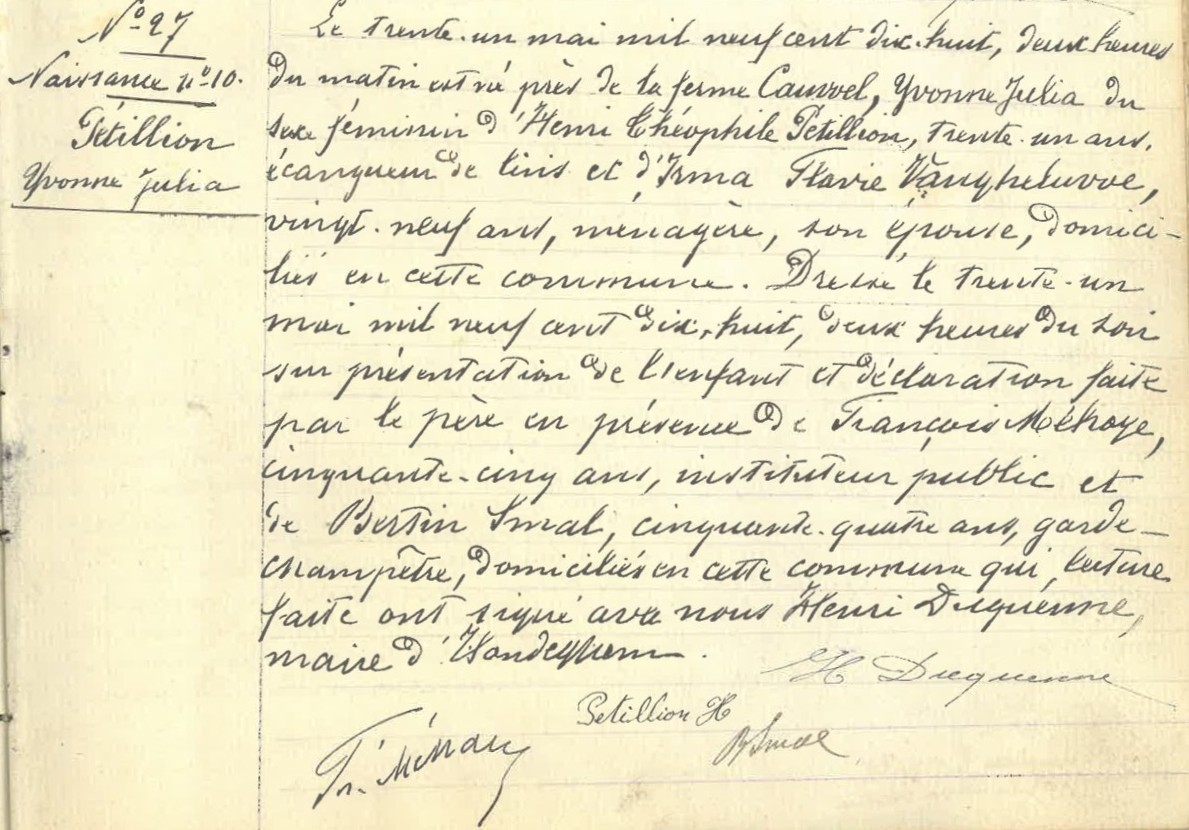 N° 27
Naissance n° 10.
Pétillion
Yvonne Julia
Le trente-un mai mil neuf cent dix-huit, deux heures
du matin est né près de la ferme Cauwel, Yvonne Julia du
sexe féminin d'Henri Théophile Pétillion, trente-un ans,
écangueur de lins et d'Irma Flavie Vangheluwe,
vingt-neuf ans, ménagère, son épouse, domici-
liés en cette commune. Dressé le trente-un
mai mil neuf cent dix-huit, deux heures du soir
sur présentation de l'enfant et déclaration faite
par le père en présence de François
cinquante-cinq ans, instituteur public et
de Bertin Smal, cinquante-quatre ans, garde-
champêtre, domiciliés en cette commune qui, lecture
faite ont signé avec nous Henri Duquenne,
maire d'Hondeghem.
H Duquenne
Petillion H
B Smal
Fr.